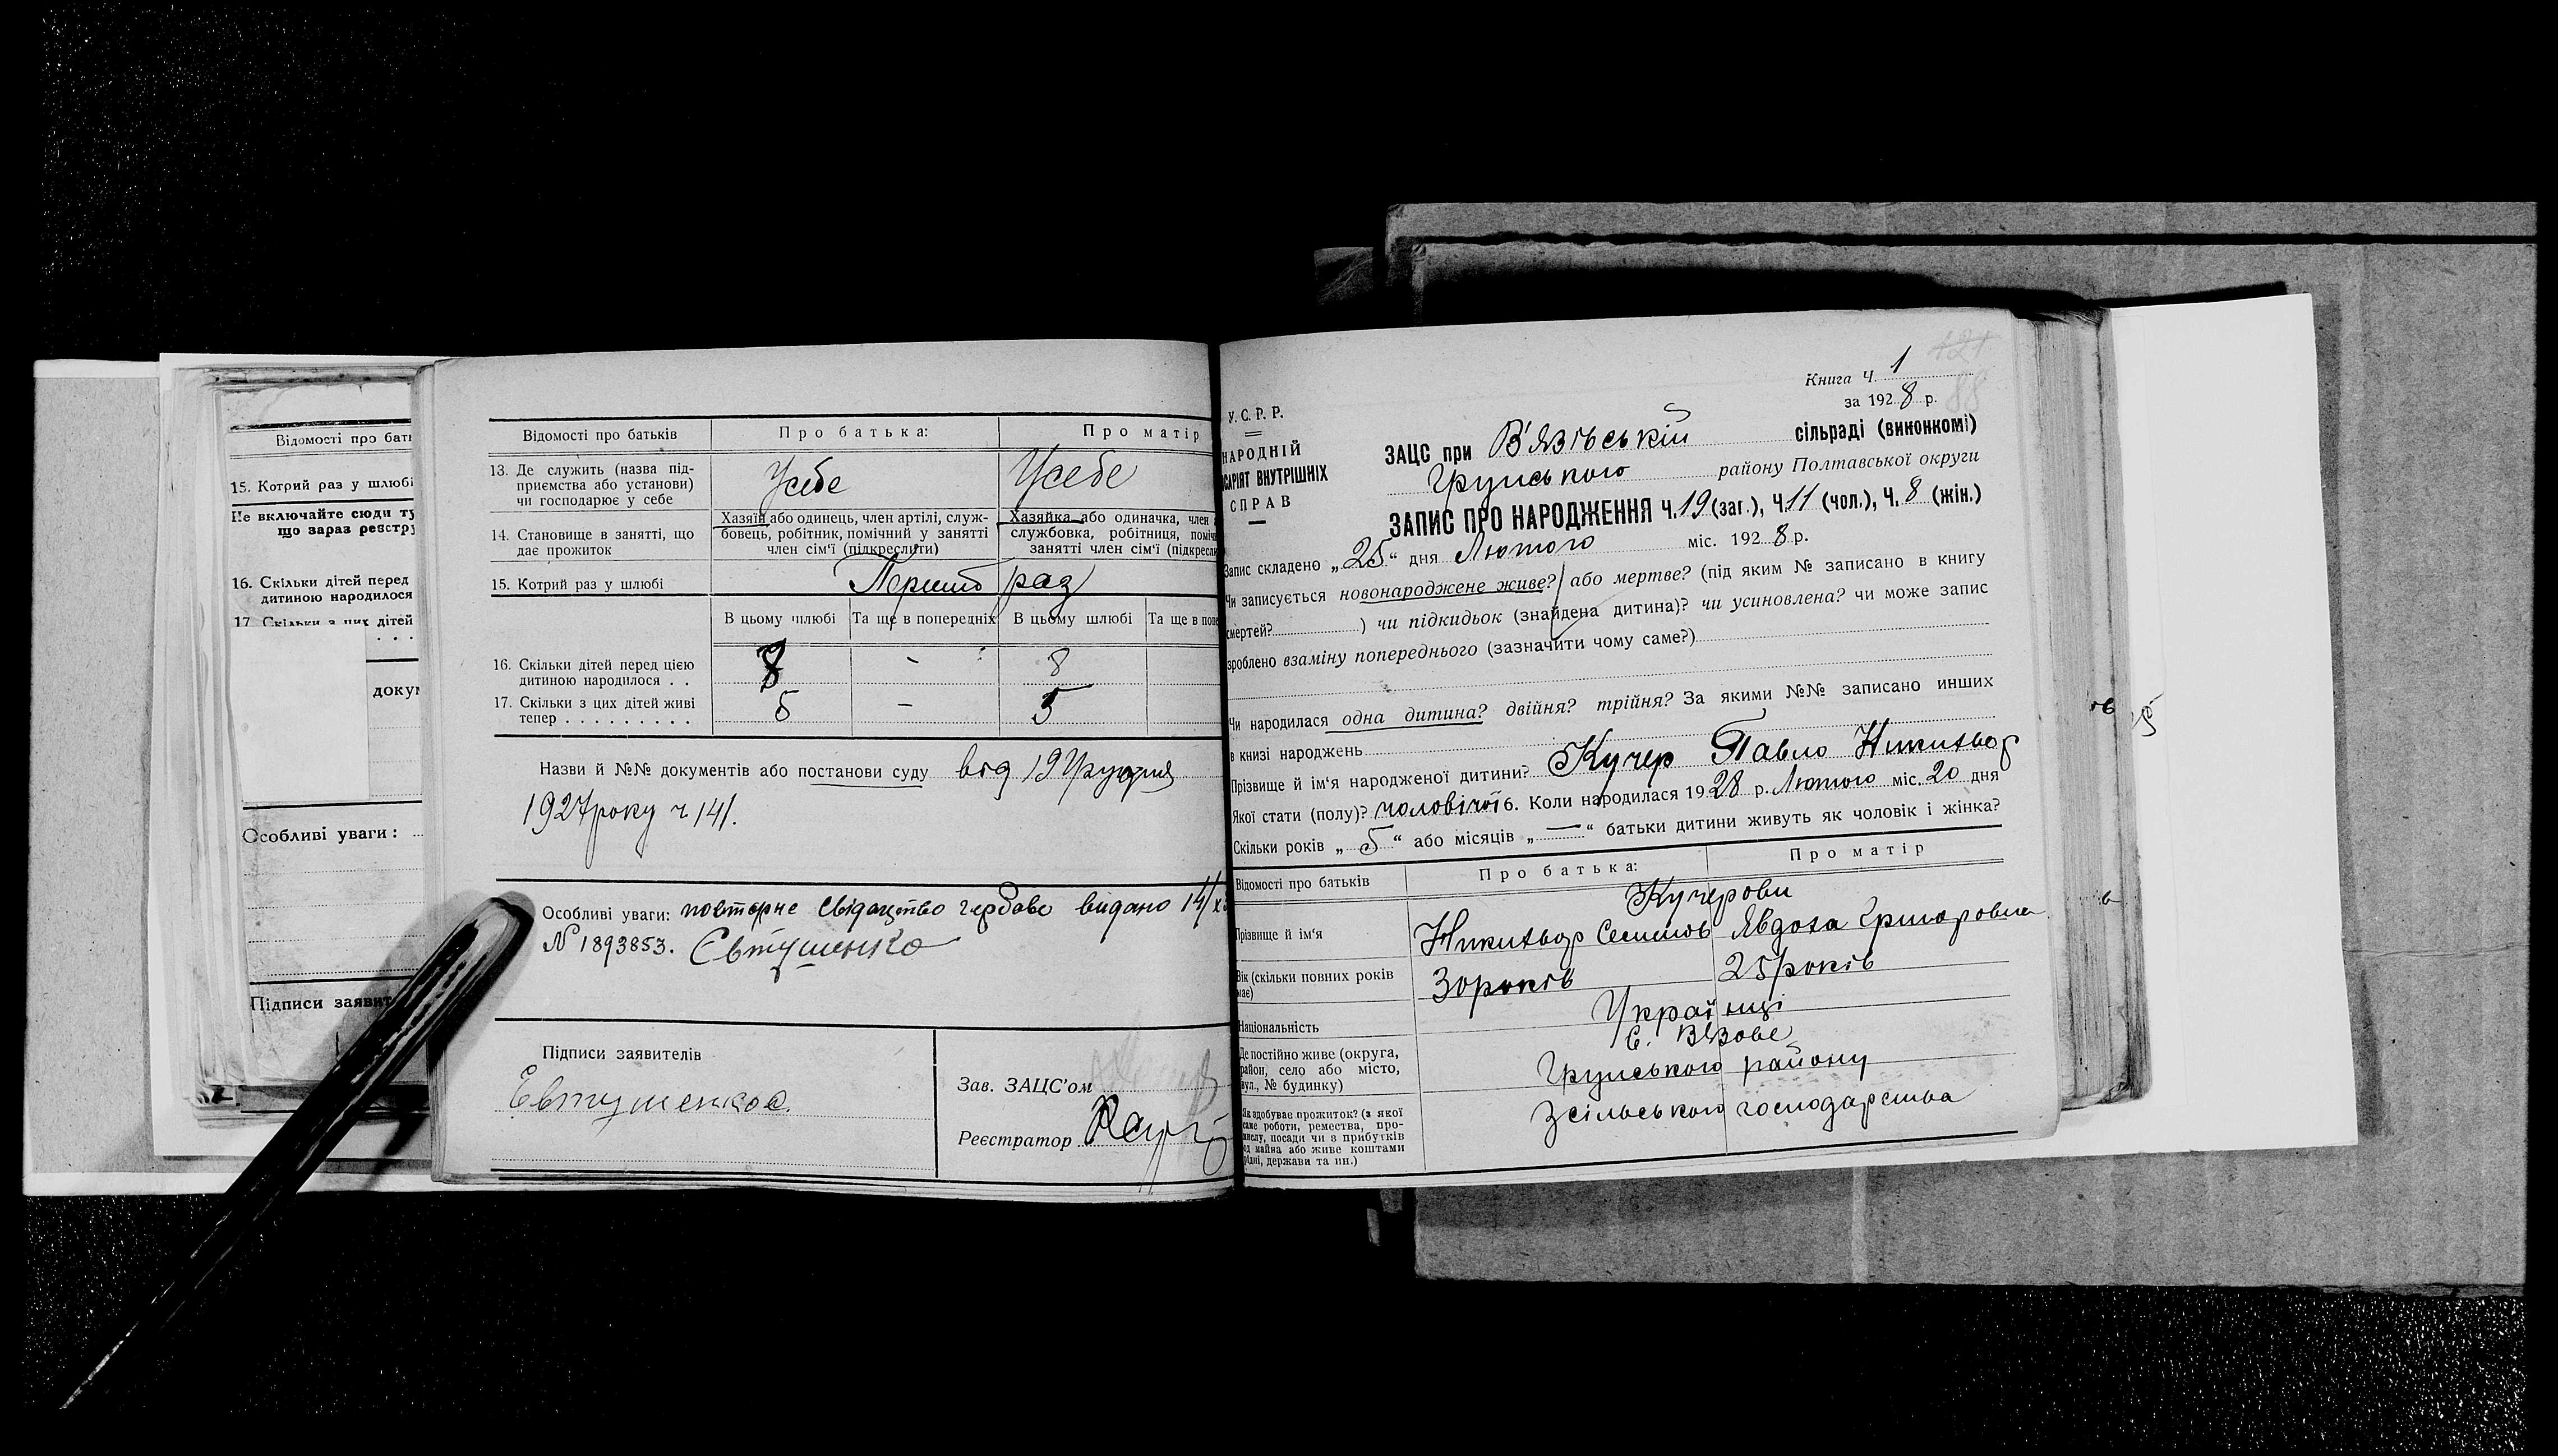 Відомості про бать
15. Котрий раз у шлюбі
Не включайте сюди ту
що зараз реєстру
16. Скільки дітей перед
дитиною народилося
17. Скільки з цих дітей
докум
Особливі уваги:
Підписи заявит
Відомості про батьків
Про батька:
Про матір
13. Де служить (назва під-
приємства або установи)
чи господарює у себе
Усебе
Усебе
14. Становище в занятті, що
дає прожиток
Хазяїн або одинець, член артілі, служ-
бовець, робітник, помічний у занятті
член сім'ї (підкреслити)
Хазяйка або одиначка, член
службовка, робітниця, поміч
занятті член сім'ї (підкресли
15. Котрий раз у шлюбі
раз
В цьому шлюбі
Та ще в попередніх
В цьому шлюбі
Та ще в попе
16. Скільки дітей перед цією
дитиною народилося . .
8 - 8
17. Скільки з цих дітей живі
тепер . . . . . . . . .
5 - 5
Назви й №№ документів або постанови суду від 19 Грудня
1927 року ч 141.
Особливі уваги: повторне свідоцтво гербове видано 14/X
№ 1893853. Євтушенко
Підписи заявителів
Евтушенкос.
Зав. ЗАЦС'ом
Реєстратор
Книга Ч. 1
за 1928 р.
У.С.Р.Р.
НАРОДНІЙ
САРІЯТ ВНУТРІШНІХ
СПРАВ
ЗАЦС при В'язівській сільраді (виконкомі)
Грунського району Полтавської округи
ЗАПИС ПРО НАРОДЖЕННЯ Ч. 19 (заг.), Ч. 11 (чол.), Ч. 8 (жін.)
Запис складено „25“ дня Лютого міс. 1928 р.
Чи записується новонароджене живе? або мертве? (під яким № записано в книгу
смертей? ) чи підкидьок (знайдена дитина)? чи усиновлена? чи може запис
зроблено взаміну попереднього (зазначити чому саме?)
Чи народилася одна дитина? двійня? трійня? За якими №№ записано инших
в книзі народжень
Прізвище й ім'я народженої дитини? Кучер Павло Никитьор
Якої стати (полу)? чоловічої 6. Коли народилася 1928 р. Лютого міс. 20 дня
Скільки років „5“ або місяців „—“ батьки дитини живуть як чоловік і жінка?
Відомості про батьків
Про батька:
Про матір
Кучерови
Прізвище й ім'я
Никитьор Семенов
Явдоха
Вік (скільки повних років
має)
30 років
25 років
Національність
Українці
с. Вязове
Де постійно живе (округа,
район, село або місто,
вул., № будинку)
Грунського району
Як здобуває прожиток? (з якої
саме роботи, ремества, про-
мислу, посади чи з прибутків
од майна або живе коштами
рідні, держави та ин.)
Зсільського господарства